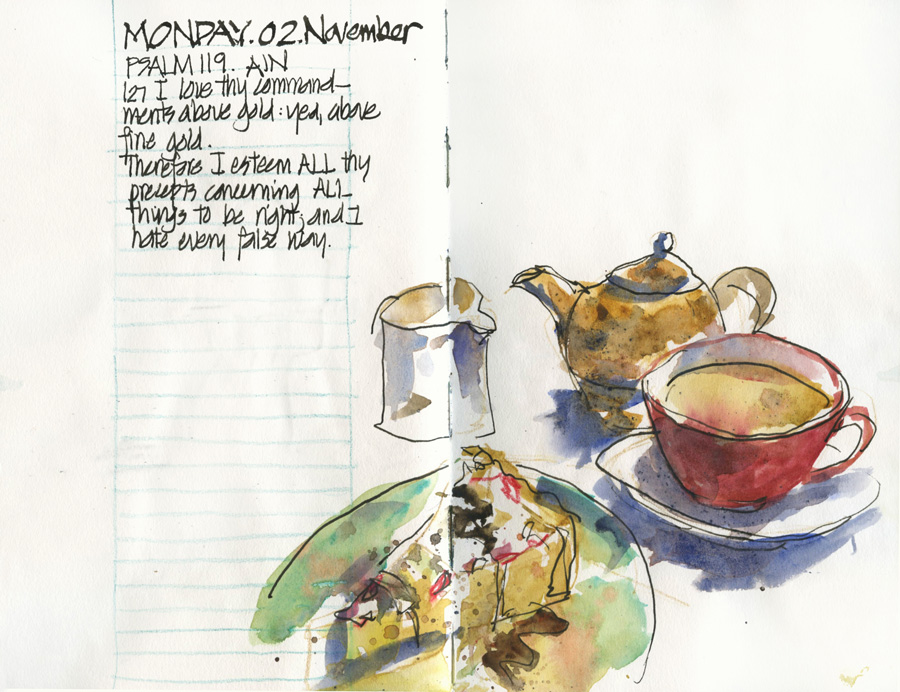 MONDAY. 02. November
PSALM 119. AIN
127 I love thy command-
ments above gold: yea, above
fine gold.
Therefore I esteem ALL thy
precepts concerning ALL
things to be right; and I
hate every false way.